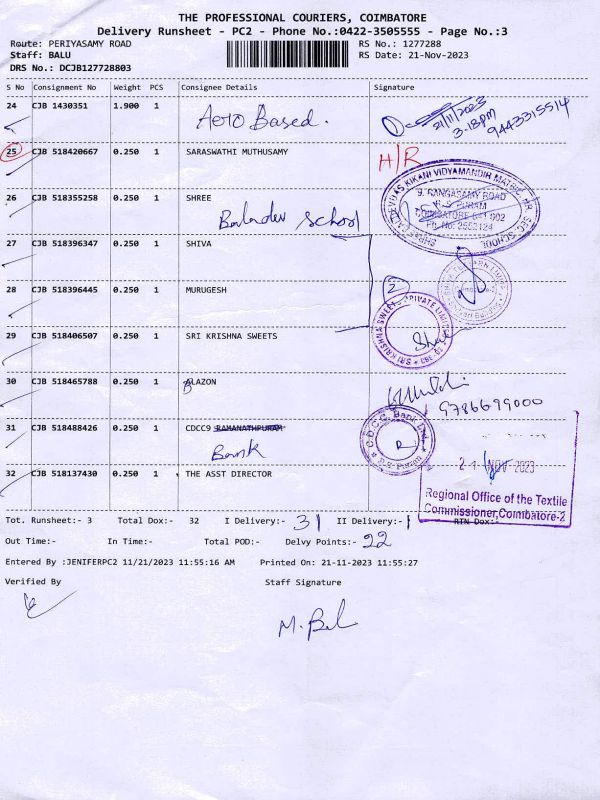 THE PROFESSIONAL COURIERS, COIMBATORE
Delivery Runsheet - PC2 - Phone No.:0422-3505555 - Page No.:3
Route: PERIYASAMY ROAD RS No.: 1277288
Staff: BALU RS Date: 21-Nov-2023
DRS No.: DCJB127728803
S No Consignment No Weight PCS Consignee Details Signature
24 CJB 1430351 1.900 1 Aero Based.
21/11/2023
3.18pm
9443315514
25 CJB 518420667 0.250 1 SARASWATHI MUTHUSAMY H/R
26 CJB 518355258 0.250 1 SHREE
Baladev school
KIKANI VIDYAMANDIR MATRIC. HR. SEC. SCHOOL
9, RANGASAMY ROAD
R.S. PURAM
COIMBATORE 641 002
Ph. No: 2552124
27 CJB 518396347 0.250 1 SHIVA
28 CJB 518396445 0.250 1 MURUGESH
2
29 CJB 518406507 0.250 1 SRI KRISHNA SWEETS
SRI KRISHNA SWEETS PRIVATE LIMITED
30 CJB 518465788 0.250 1 BLAZON
9786699000
31 CJB 518488426 0.250 1 CDCC9 RAMANATHPURAM
Bank
C.D.C.C. Bank Ltd.
R.S. Puram
32 CJB 518137430 0.250 1 THE ASST DIRECTOR
21 NOV 2023
Regional Office of the Textile
Commissioner, Coimbatore-2
Tot. Runsheet:- 3 Total Dox:- 32 I Delivery:- 31 II Delivery:- 1 RTN Dox:-
Out Time:- In Time:- Total POD:- Delvy Points:- 22
Entered By :JENIFERPC2 11/21/2023 11:55:16 AM Printed On: 21-11-2023 11:55:27
Verified By Staff Signature
M. Bal